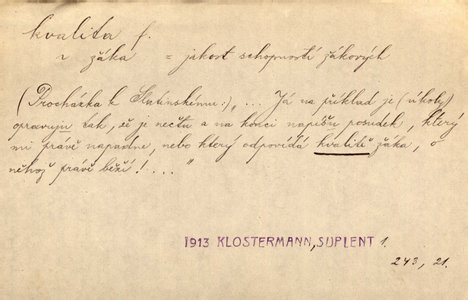 kvalita f.
~ žáka = jakost schopností žákových
(Procházka k Slatinskému:) „... Já na příklad je (úkoly)
opravuju tak, že je nečtu a na konci napíšu posudek, který
mi právě napadne, nebo který odpovídá kvalitě žáka, o
něhož právě běží! ...“
1913 KLOSTERMANN, SUPLENT 1.
243, 21.